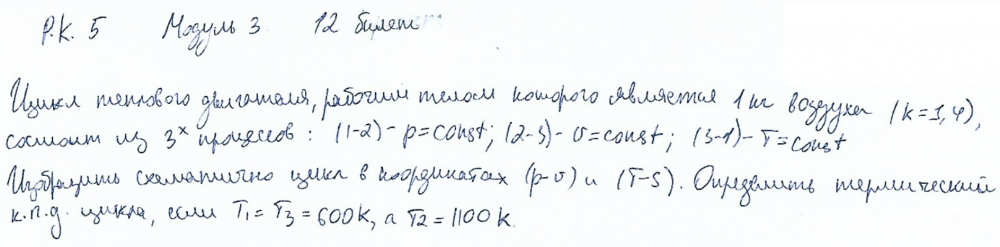 Р.К. 5 Модуль 3 12 билет
Цикл теплового двигателя, рабочим телом которого является 1 кг воздуха (k=1,4),
состоит из 3х процессов: (1-2)- p=const; (2-3)- υ=const; (3-1)- T=const
Изобразить схематично цикл в координатах (p-υ) и (T-S). Определить термический
к.п.д. цикла, если T1=T3=600k, а T2=1100k.